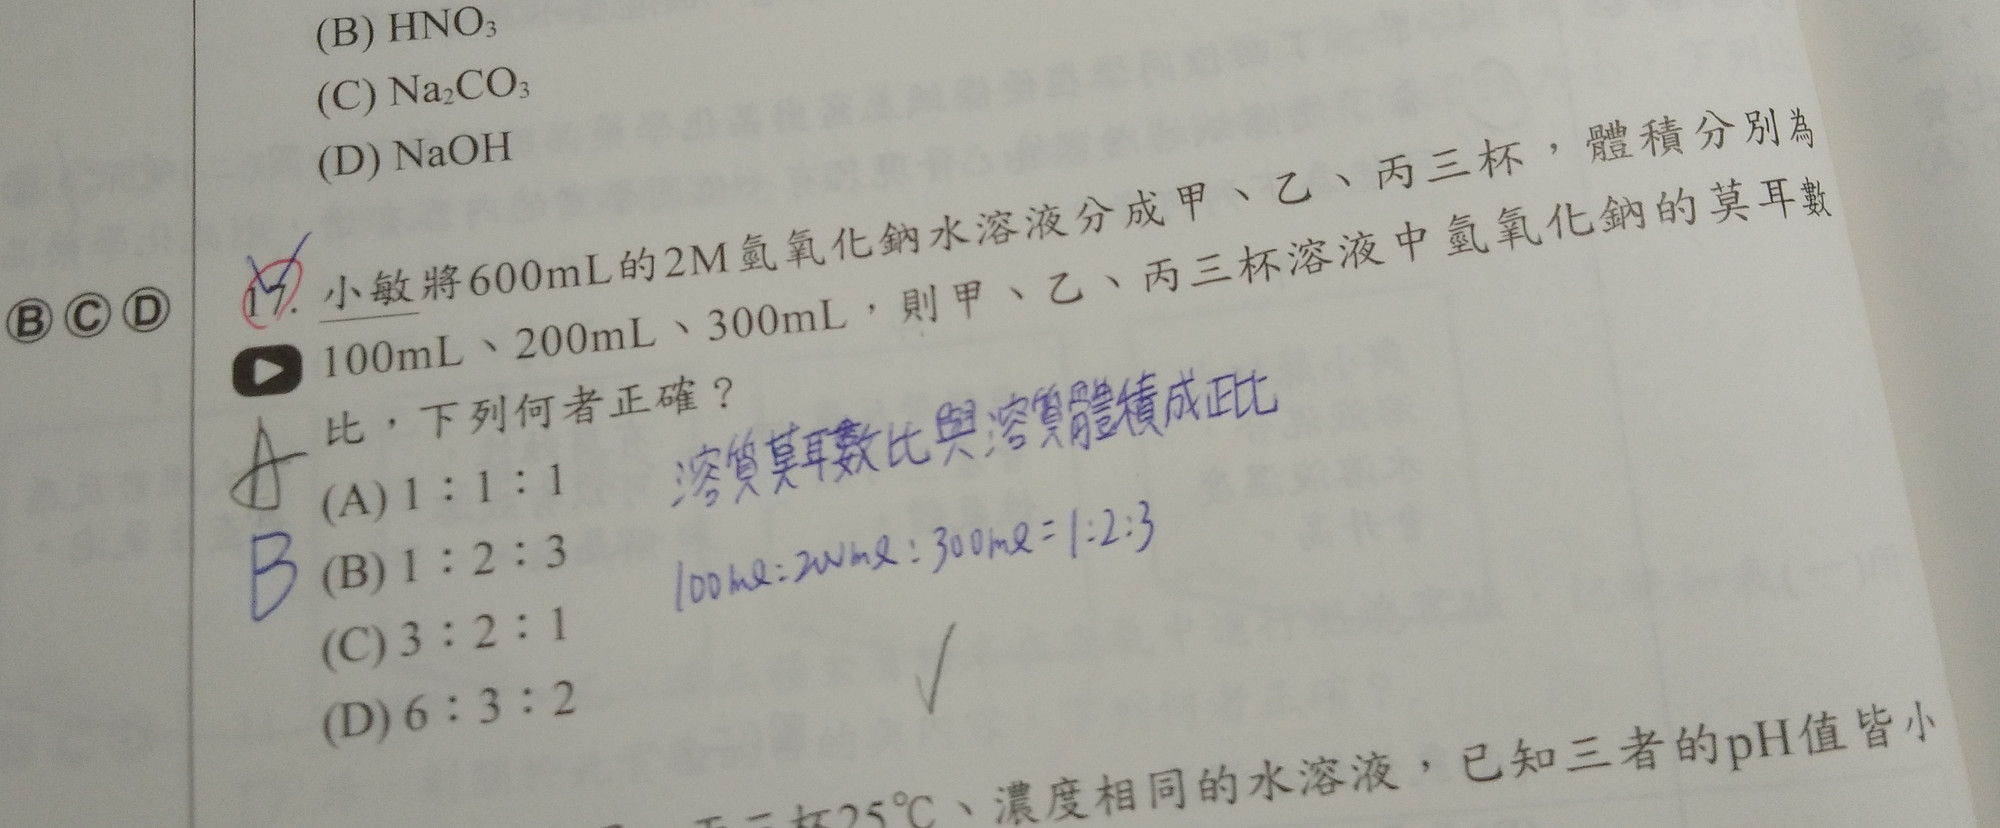 (B) HNO₃
(C) Na₂CO₃
(D) NaOH
Ⓑ Ⓒ Ⓓ
17. 小敏將600mL的2M氫氧化鈉水溶液分成甲、乙、丙三杯，體積分別為
100mL、200mL、300mL，則甲、乙、丙三杯溶液中氫氧化鈉的莫耳數
比，下列何者正確？
溶質莫耳數比與溶質體積成正比
A
(A) 1：1：1
100ml:200ml:300ml=1:2:3
B
(B) 1：2：3
(C) 3：2：1
(D) 6：3：2
25℃、濃度相同的水溶液，已知三者的pH值皆小